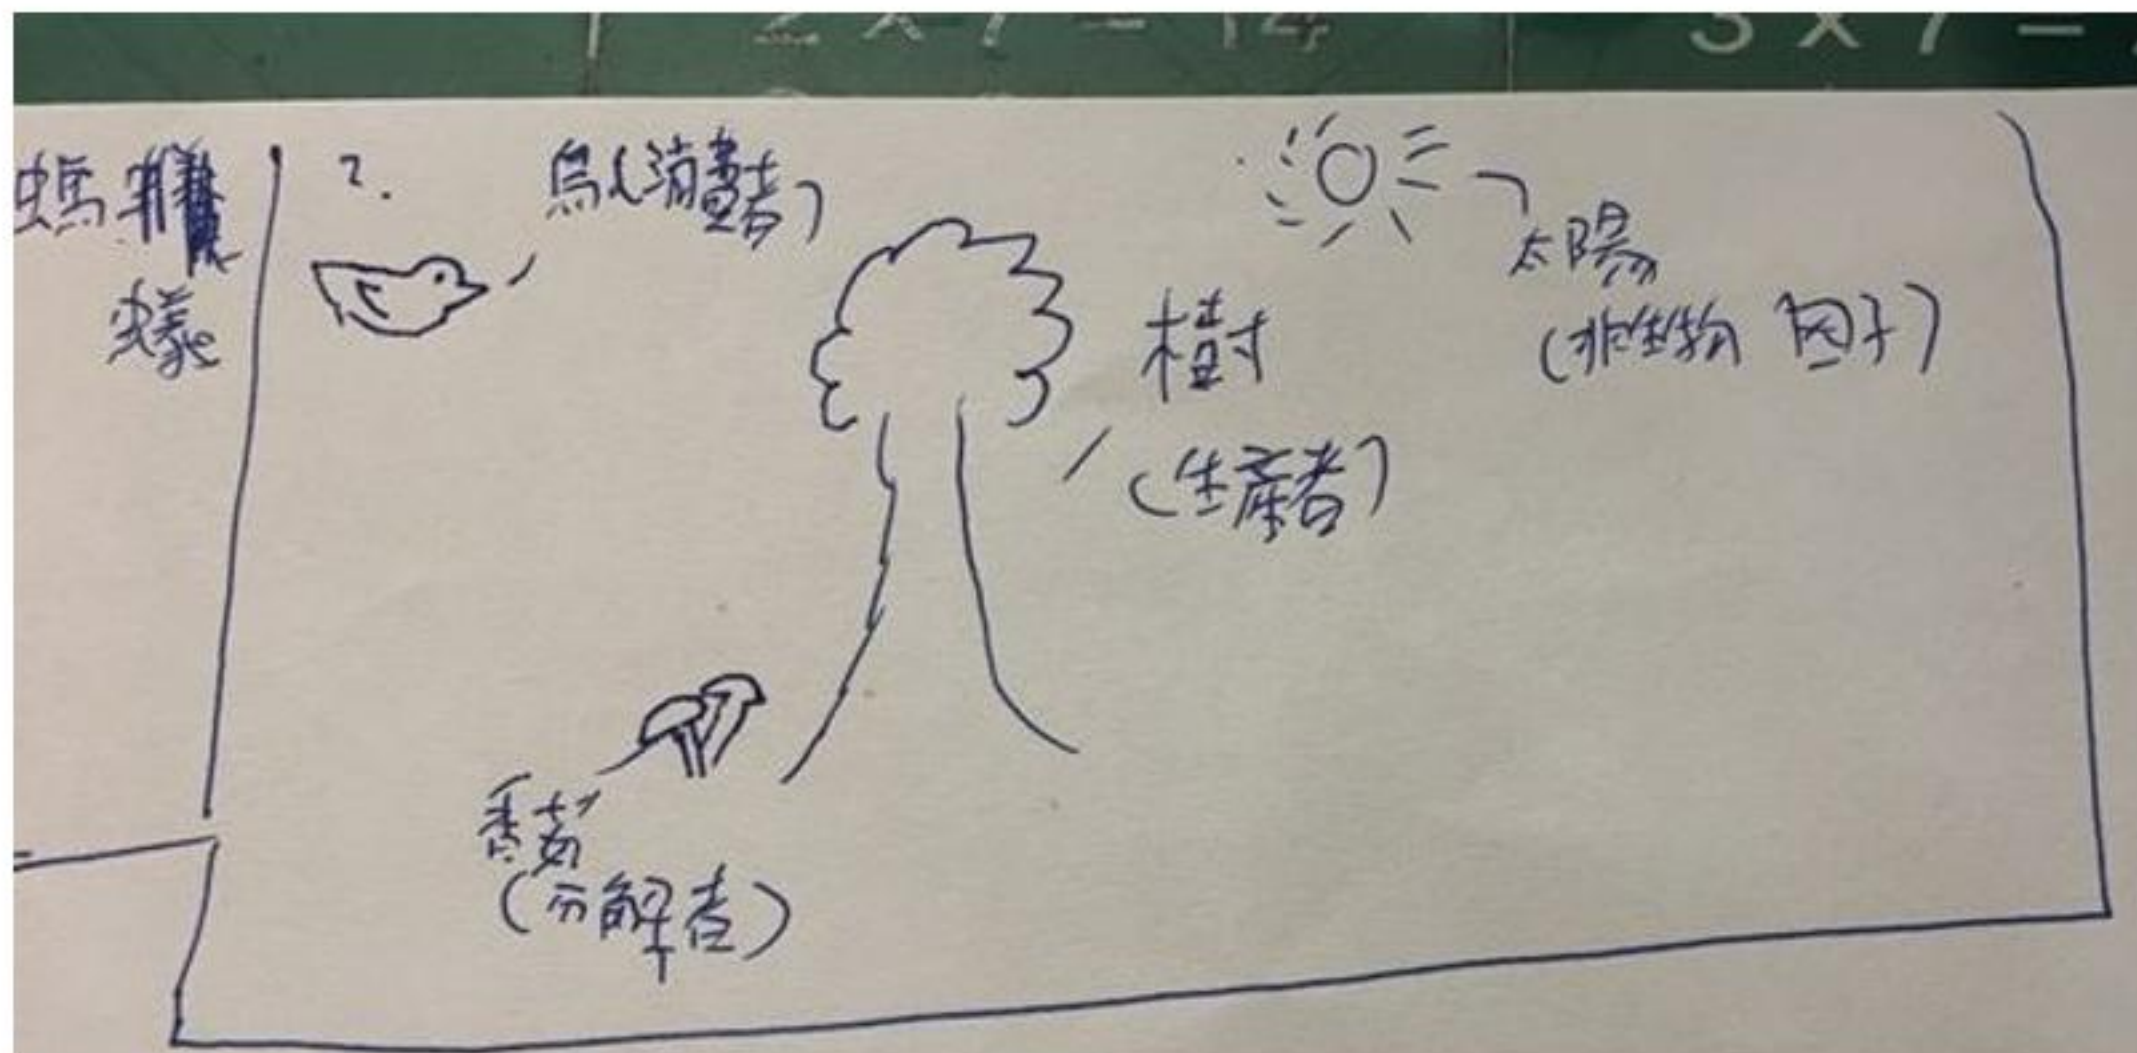 2 x 7 = 14
3 x 7 =
螞
蟻
2.
鳥(消費者)
太陽
(非生物 因子)
樹
(生產者)
香菇
(分解者)